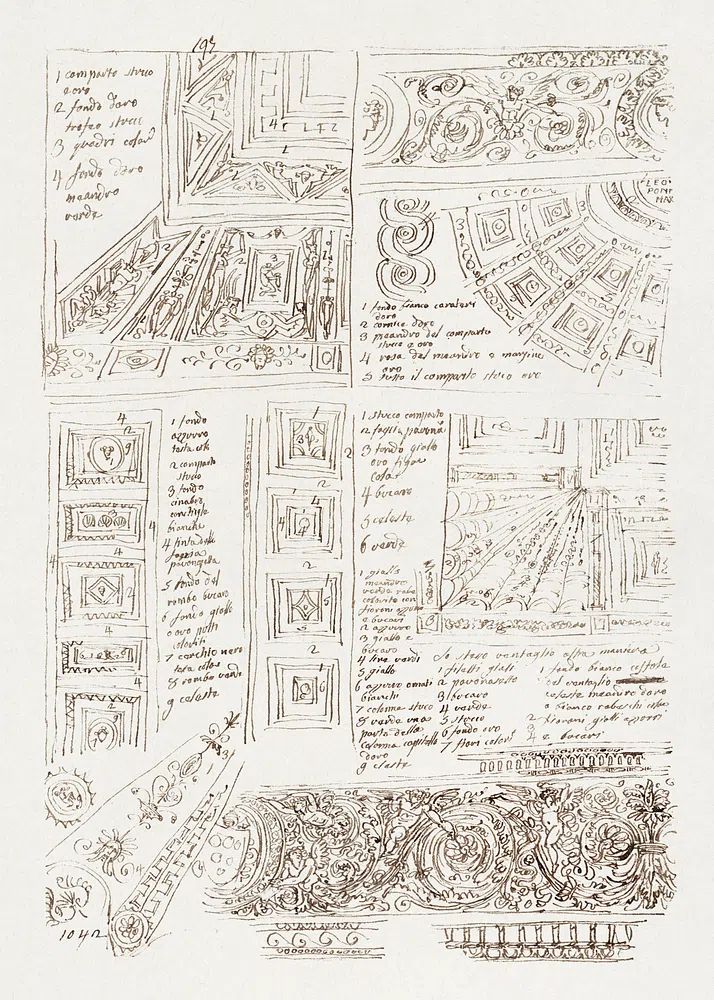 197
1 comparto stuco
e oro
2 fondo d'oro
trofeo stuco
3 quadri colori
4 fondo d'oro
meandro
verde
LEO
PONT
MAX
1 fondo bianco caratteri
d'oro
2 cornice d'oro
3 meandro del comparto
stuco e oro
4 rosa del meandro e margine
oro
5 tutto il comparto stuco oro
1 fondo
azzurro
2 comparto
stuco
3 fondo
cinabro
bianche
4 tinta
pavonazetta
5 fondo del
rombo bucaro
6 fondo giallo
o oro putti
coloriti
7 cerchio nero
testa color
8 rombo verde
9 celeste
1 stucco comparto
3 fondo giallo
oro figure
color
4 bucaro
5 celeste
6 verde
1 giallo
meandro
verde
colorite con
fioroni azzurri
e bucari
2 azzurro
3 giallo e
bucaro
4 tire verdi
5 giallo
6 azzurro ornati
bianchi
7 colonna stuco
8 verde una
parte della
colonna capitello
d'oro
9 celeste
Lo stesso ventaglio altra maniera
1 filetti giali
2 pavonazetto
3 bucaro
4 verde
5 stucco
6 fondo oro
7 fiori colori
1 fondo bianco
del ventaglio
celeste meandro d'oro
o bianco rabeschi
2 fioroni gialli azzurri
4 e bucari
1042